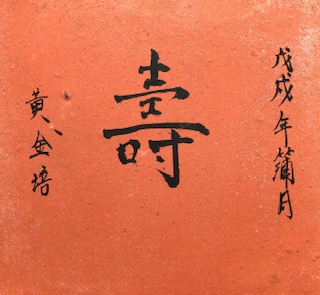 戊戌年蒲月
壽
黃金培